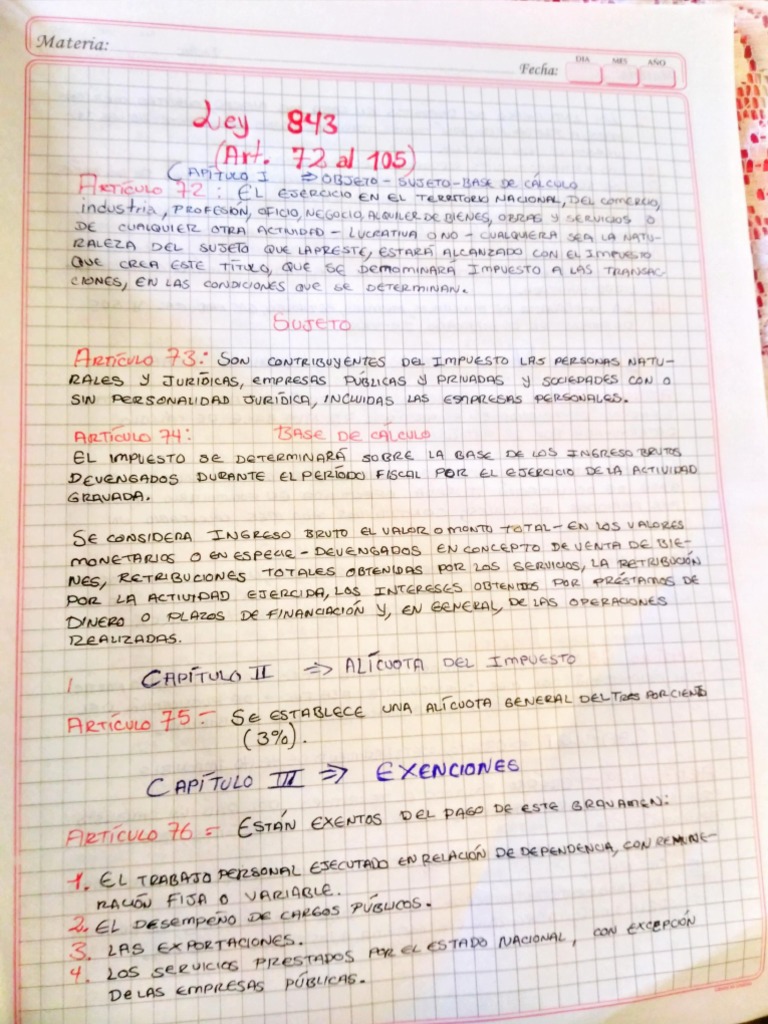 Materia:
Fecha:
DIA MES AÑO
Ley 843
(Art. 72 al 105)
CAPÍTULO I ⇒ OBJETO - SUJETO - BASE DE CÁLCULO
ARTÍCULO 72: EL EJERCICIO EN EL TERRITORIO NACIONAL, DEL COMERCIO,
industria, PROFESIÓN, OFICIO, NEGOCIO, ALQUILER DE BIENES, OBRAS Y SERVICIOS O
DE CUALQUIER OTRA ACTIVIDAD - LUCRATIVA O NO - CUALQUIERA SEA LA NATU-
RALEZA DEL SUJETO QUE LA PRESTE, ESTARÁ ALCANZADO CON EL IMPUESTO
QUE CREA ESTE TÍTULO, QUE SE DEMOMINARÁ IMPUESTO A LAS TRANSAC-
CIONES, EN LAS CONDICIONES QUE SE DETERMINAN.
SUJETO
ARTÍCULO 73: SON CONTRIBUYENTES DEL IMPUESTO LAS PERSONAS NATU-
RALES Y JURÍDICAS, EMPRESAS PÚBLICAS Y PRIVADAS Y SOCIEDADES CON O
SIN PERSONALIDAD JURÍDICA, INCLUIDAS LAS EMPRESAS PERSONALES.
ARTÍCULO 74: BASE DE CÁLCULO
EL IMPUESTO SE DETERMINARÁ SOBRE LA BASE DE LOS INGRESO BRUTOS
DEVENGADOS DURANTE EL PERÍODO FISCAL POR EL EJERCICIO DE LA ACTIVIDAD
GRAVADA.
SE CONSIDERA INGRESO BRUTO EL VALOR O MONTO TOTAL - EN LOS VALORES
MONETARIOS O EN ESPECIE - DEVENGADOS EN CONCEPTO DE VENTA DE BIE-
NES, RETRIBUCIONES TOTALES OBTENIDAS POR LOS SERVICIOS, LA RETRIBUCIÓN
POR LA ACTIVIDAD EJERCIDA, LOS INTERESES OBTENIDOS POR PRÉSTAMOS DE
DINERO O PLAZOS DE FINANCIACIÓN Y, EN GENERAL, DE LAS OPERACIONES
REALIZADAS.
CAPÍTULO II ⇒ ALÍCUOTA DEL IMPUESTO
ARTÍCULO 75 = SE ESTABLECE UNA ALÍCUOTA GENERAL DEL TRES POR CIENTO
(3%).
CAPÍTULO III ⇒ EXENCIONES
ARTÍCULO 76 = ESTÁN EXENTOS DEL PAGO DE ESTE GRAVAMEN:
1. EL TRABAJO PERSONAL EJECUTADO EN RELACIÓN DE DEPENDENCIA, CON REMUNE-
RACIÓN FIJA O VARIABLE.
2. EL DESEMPEÑO DE CARGOS PÚBLICOS.
3. LAS EXPORTACIONES.
4. LOS SERVICIOS PRESTADOS POR EL ESTADO NACIONAL, CON EXCEPCIÓN
DE LAS EMPRESAS PÚBLICAS.